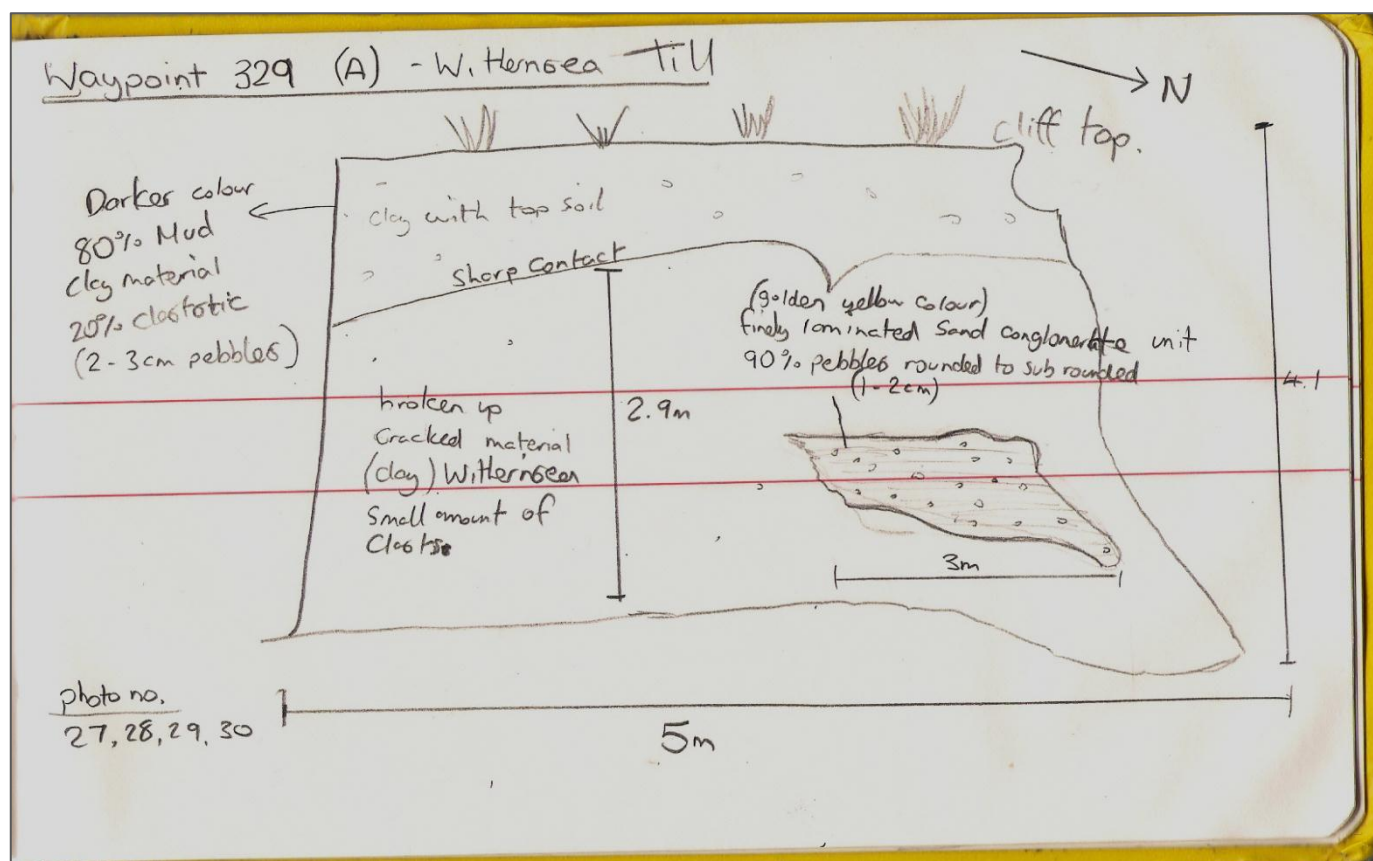 Waypoint 329 (A) - Withernsea Till
N
cliff top.
Darker colour
80% Mud
Clay material
20% clastotic
(2-3cm pebbles)
Clay with top soil
Sharp Contact
(golden yellow colour)
finely laminated Sand conglomerate unit
90% pebbles rounded to sub rounded
(1-2cm)
4.1
broken up
Cracked material
(clay) Withernsea
Small amount of
Clasts
2.9m
3m
photo no.
27, 28, 29, 30
5m